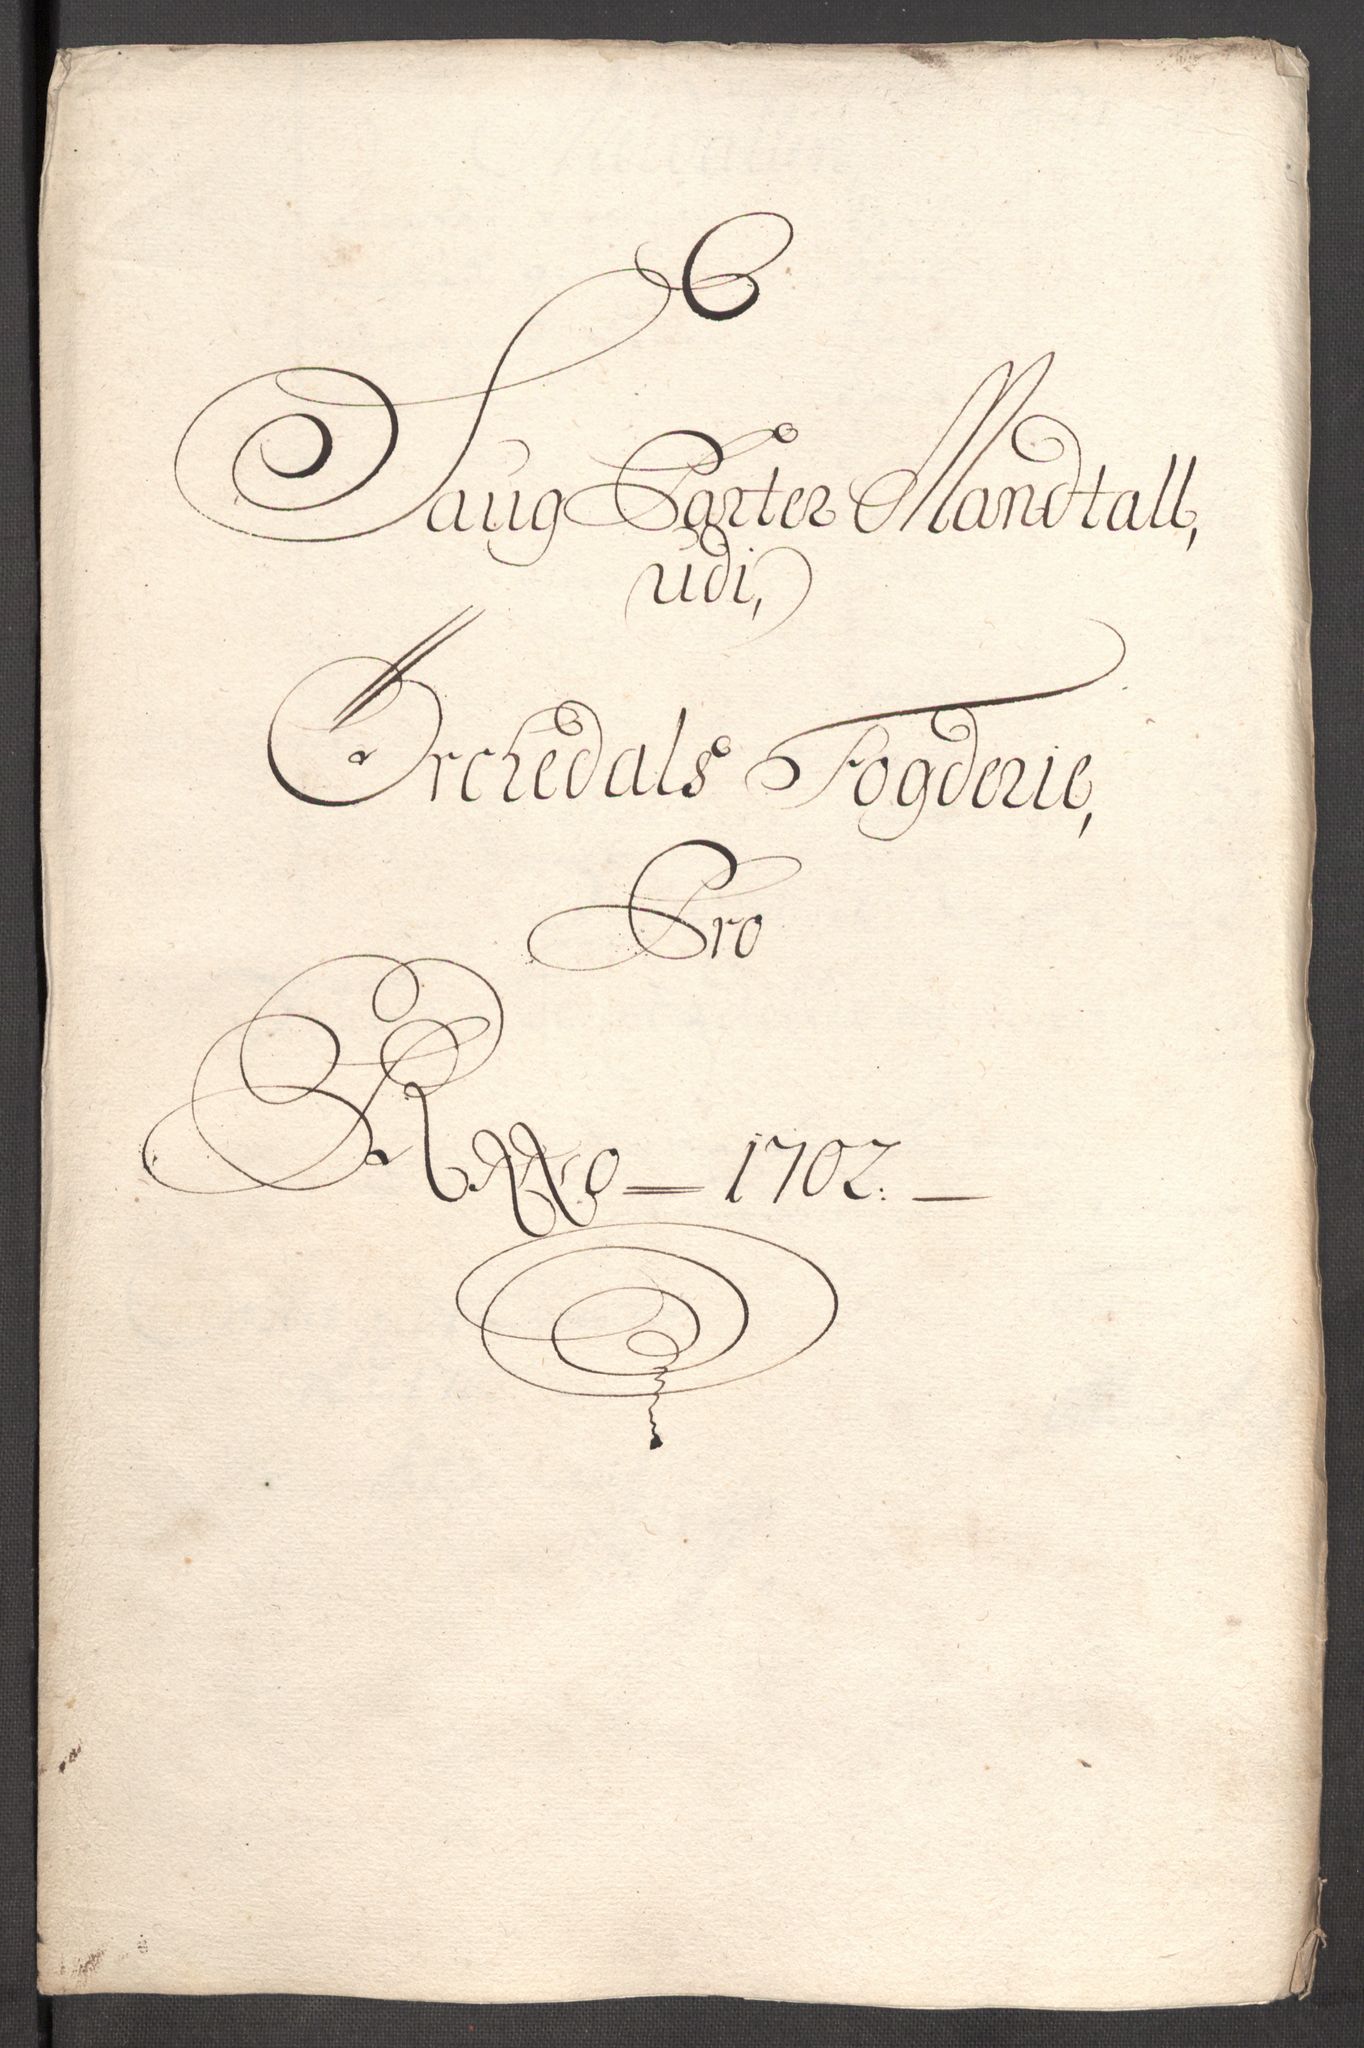 Saug Parter Mandtall,
udi,
Orchedals Fogderie,
Pro
Anno 1702.